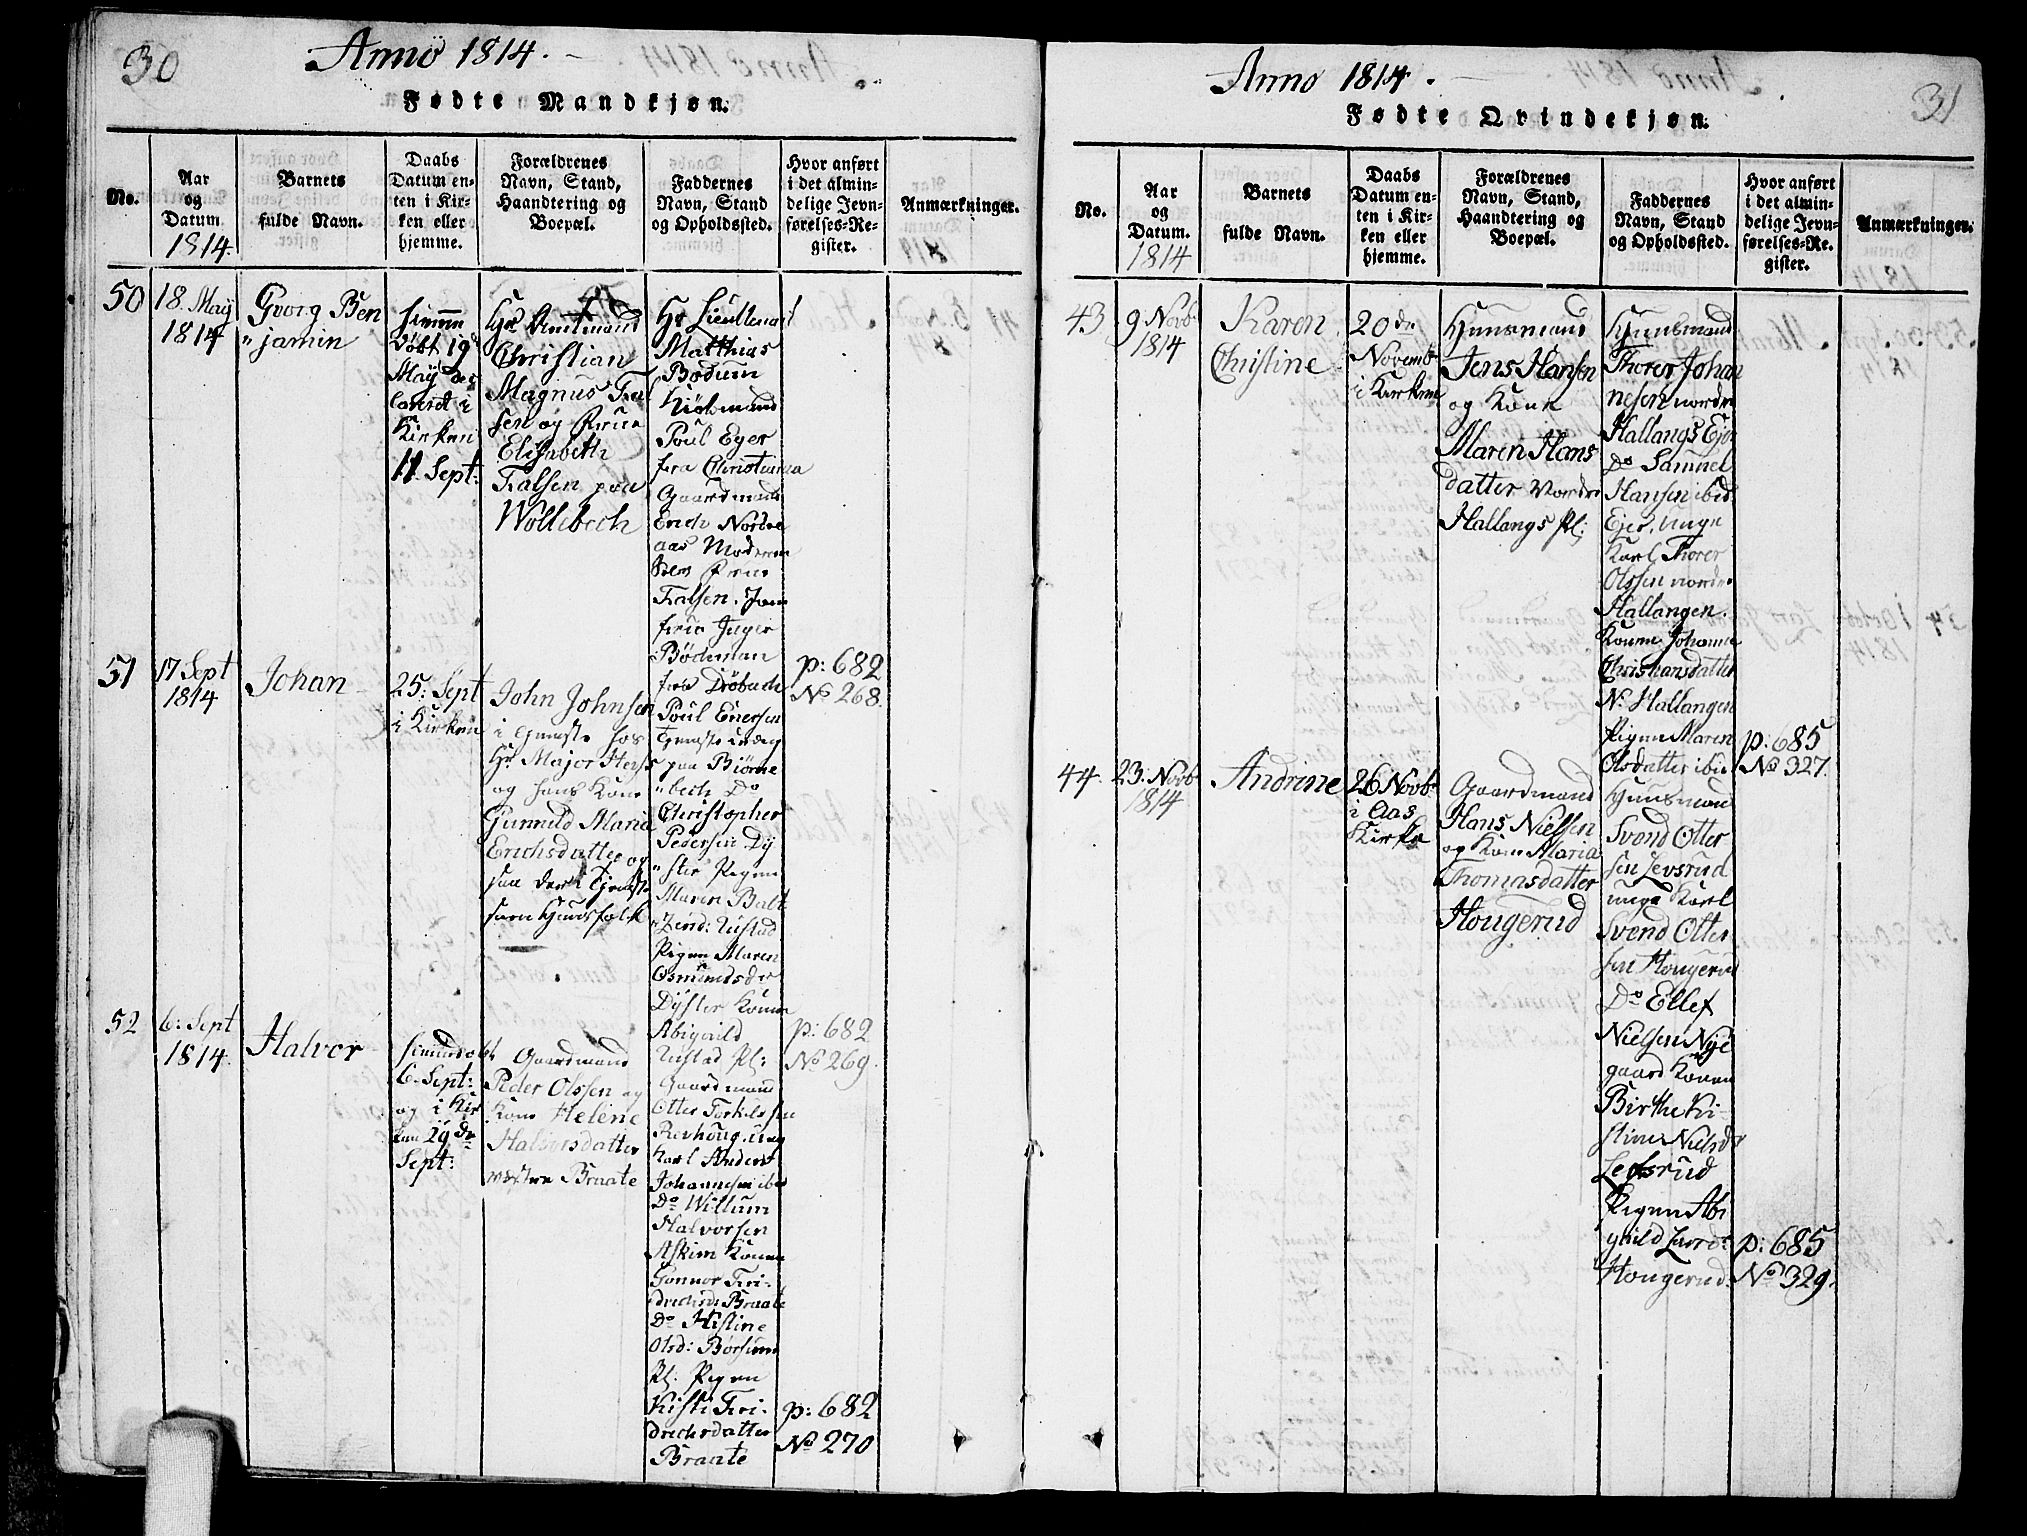 30
Anno 1814.
Fødte Mandkjøn.
No.
Aar
og
Datum.
1814.
Barnets
fulde Navn.
Daabs
Datum en-
ten i Kir-
ken eller
hjemme.
Forældrenes
Navn, Stand,
Haandtering og
Boepæl.
Faddernes
Navn, Stand
og Opholdssted.
Hvor anført
i det almin-
delige Jevn-
førelses-Re-
gister.
Anmærkninger.
50
18. Maÿ
1814
Georg Ben
jamin
hjemme
døbt 19
Maÿ
i
Kirken
11. Sept:
Hr Amtmand
Christian
Magnus Fal
sen og Frue
Elisabeth
Falsen paa
Wollebech
Hr Lieutenant
Matthias
Bodum
Kiøbmand
Poul Eger
fra Christiania
Gaardmand
Erich Nordre
aas Moderen
Frue
Falsen. Jom
frue Inger
Bödtman
fra Drøbach
p: 682
No 268.
51
17 Sept
1814
Johan
25: Sept
i Kirken
John Johnsen
i Tjeneste hos
Hr Major Hess
og hans Kone
Gunnild Maria
Erichsdatter og
Poul Enersen
Tjeneste
paa Biørne
bech Do
Christopher
Pedersen Dÿ
ster Pigen
Maren Balt
zersd: Ustad
Pigen Maren
Osmundsdr
Dÿster Konen
Abigaild
Ustad Pl:
p: 682
No 269.
52
6: Sept
1814.
Halvor
hiemmedøbt
6. Sept:
og i Kir
ken 29 de
Sept:
Gaardmand
Peder Olssen og
Kone Helene
Halvorsdatter
vestre Braate
Gaardmand
Otter Torkelssen
Revhoug, ung
Karl Anders
Johannesen ibid
Do Willum
Halvorsen
Askim Konen
Gonnor Fri-
drichsd: Braate
Do Kistine
Olsd: Børsum
Pl. Pigen
Kisti Fri-
drichsdatter
Braate
p: 682
No 270
31
Anno 1814.
Fødte Qvindekjøn.
No.
Aar
og
Datum.
1814
Barnets
fulde Navn.
Daabs
Datum en-
ten i Kir-
ken eller
hjemme.
Forældrenes
Navn, Stand,
Haandtering og
Boepæl.
Faddernes
Navn, Stand
og Opholdssted.
Hvor anført
i det almin-
delige Jevn-
førelses-Re-
gister.
Anmærkninger.
43
9 Novb
1814
Karen
Christine
20 de
Novemb
i Kirken
Huusmand
Jens Hansen
og Kone
Maren Hans
datter Nordre
Hallangs Pl:
Huusmand
Thorer Johan
nesen nordre
Hallangs Eje
Do Samuel
Hansen ibid
Ejer, unge
Karl Thorer
Olssen nordre
Hallangen.
Konen Johanne
Christiansdatter
N. Hallangen
Pigen Maren
Olsdatter ibid
p: 685
No 327.
44.
23: Novb
1814
Andrine
26 Novb
i Aas
Kirke
Gaardmand
Hans Nielsen
og Kone Maria
Thomasdatter
Hougerud
Huusmand
Svend Otter
sen Levsrud
unge Karl
Svend Otter
sen Hougerud
Do Ellef
Nielsen Nÿe
gaard Konen
Birthe Ki-
stine Nielsdr
Lefsrud
Pigen Abi
gaild Larsd:
Hougerud.
p: 685
No 329.